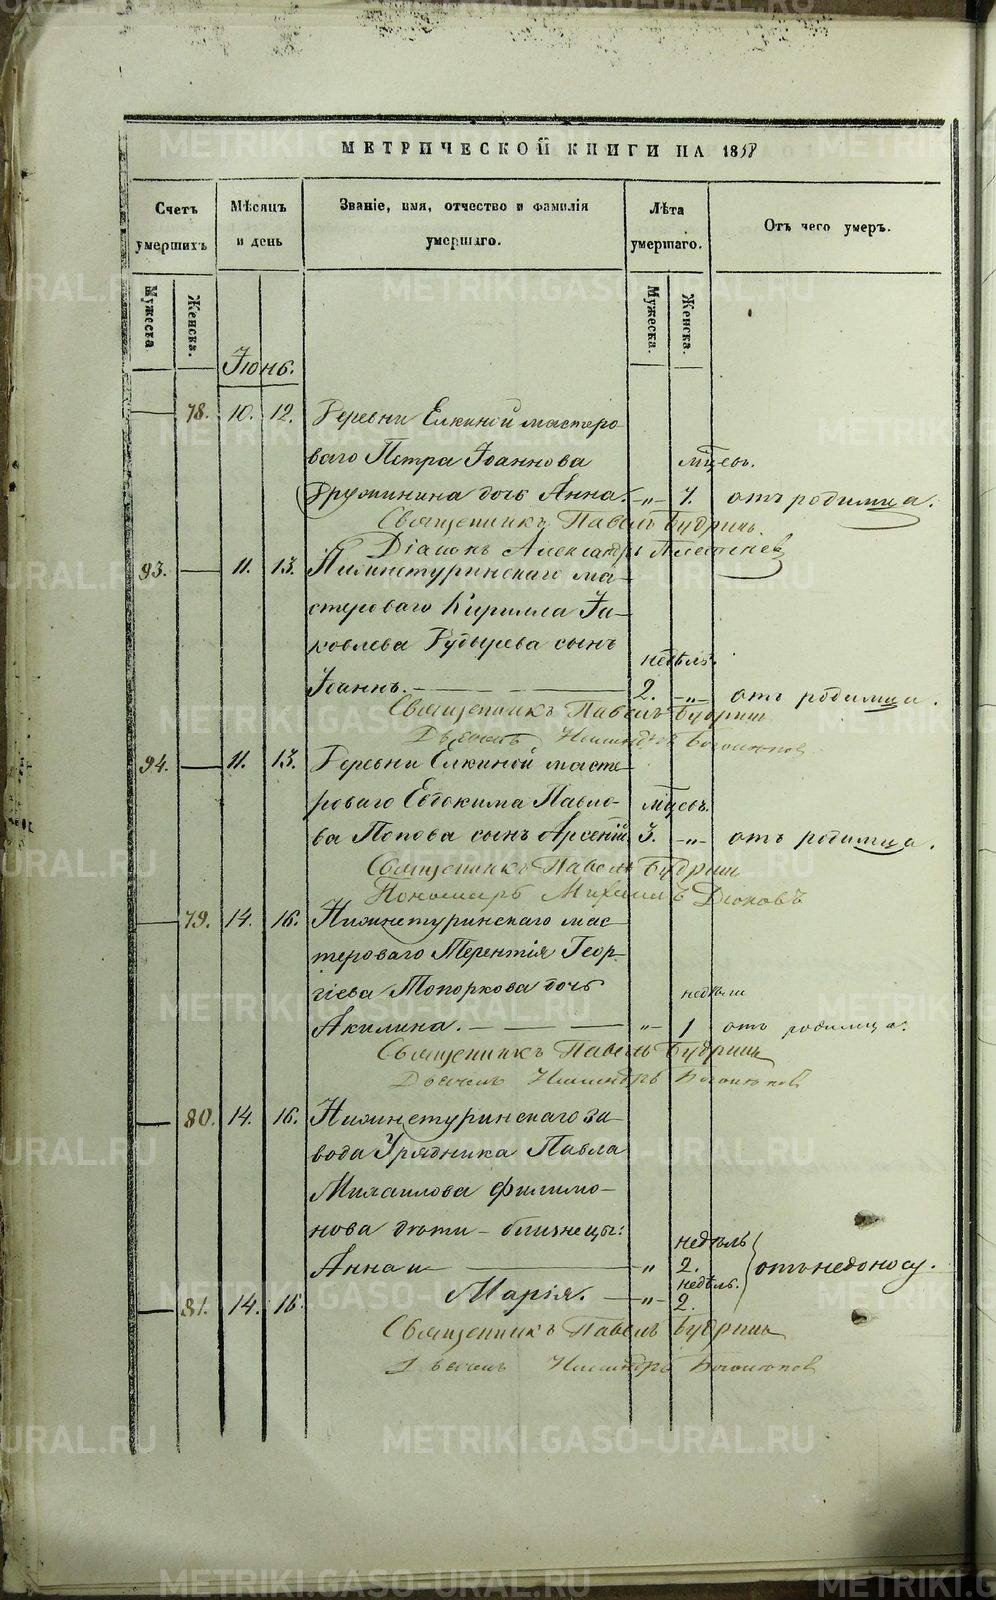 МЕТРИЧЕСКОЙ КНИГИ НА 1858
Счетъ умершихъ
Мѣсяцъ и день
Званіе, имя, отчество и фамилія умершаго.
Лѣта умершаго.
Отъ чего умеръ.
Мужеска
Женска.
Мужеска.
Женска.
Іюнь.
78. 10. 12. Деревни Елкиной мастеро
ваго Петра Іоаннова мѣсяцъ.
Дружинина дочь Анна. „ отъ родимца.
Священникъ Павелъ Будринъ.
Діаконъ Александръ
93. 11. 13. Нижнетуринскаго ма-
стероваго Кирилла Іа-
ковлева сынъ недѣль.
Іоаннъ. 2. „ отъ родимца.
Священникъ Павелъ Будринъ
94. 11. 13. Деревни Елкиной масте-
роваго Евдокима Павло- мѣсяцъ.
ва Попова сынъ Арсеній 3. „ отъ родимца.
Священникъ Павелъ Будринъ
Пономарь Михаилъ
79. 14. 16. Нижнетуринскаго мас-
тероваго Терентія Геор-
гіева Топоркова дочь недѣли
Акилина. „ 1 отъ родимца.
Священникъ Павелъ Будринъ
80. 14. 16. Нижнетуринскаго за-
вода Урядника Павла
Михаилова Филимо-
нова дѣти - близнецы: недѣль
Анна и „ 2. отъ недоносу.
недѣль.
81. 14. 16. Марія. „ 2.
Священникъ Павелъ Будринъ
METRIKI.GASO-URAL.RU